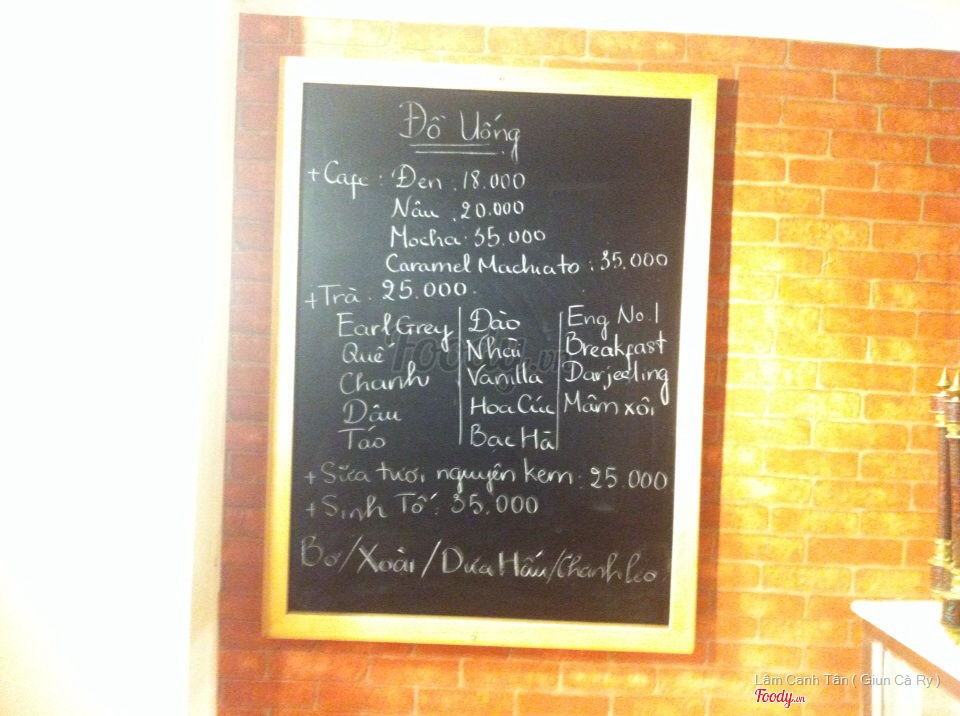 Đồ Uống
+ Cafe : Đen : 18.000
Nâu : 20.000
Mocha : 35.000
Caramel Machiato : 35.000
+ Trà : 25.000
Earl Grey
Quế
Chanh
Dâu
Táo
Đào
Nhài
Vanilla
Hoa Cúc
Bạc Hà
Eng No.1
Breakfast
Darjeeling
Mâm xôi
+ Sữa tươi nguyên kem : 25.000
+ Sinh Tố : 35.000
Bơ/Xoài/Dưa Hấu/Chanh leo
Foody.vn
Lâm Canh Tân ( Giun Cà Ry )
Foody.vn